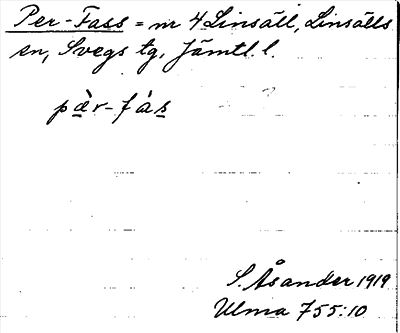 Per-Fass = nr 4 Linsäll, Linsälls
sn, Svegs tg, Jämtl. l.
pæ̀r-fás
S. Åsander 1919
Ulma 755:10